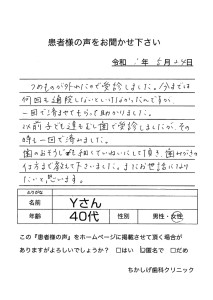 患者様の声をお聞かせ下さい
令和 年 5月24日
つめものが外れたので受診しました。今までは
何回も通院しないといけなかったのですが
一回で済ませてもらって助かりました。
以前子ども達もむし歯で受診しましたが、その
時も一回で済みました。
歯のおそうじも細くていねいにして頂き、歯みがきの
仕方まで教えて下さいました。またお世話になり
たいと思います。
ふりがな
名前 Yさん
年齢 40代 性別 男性・女性
この『患者様の声』をホームページに掲載させて頂く場合が
ありますがよろしいでしょうか？ □はい ☑匿名で □だめ
ちかしげ歯科クリニック